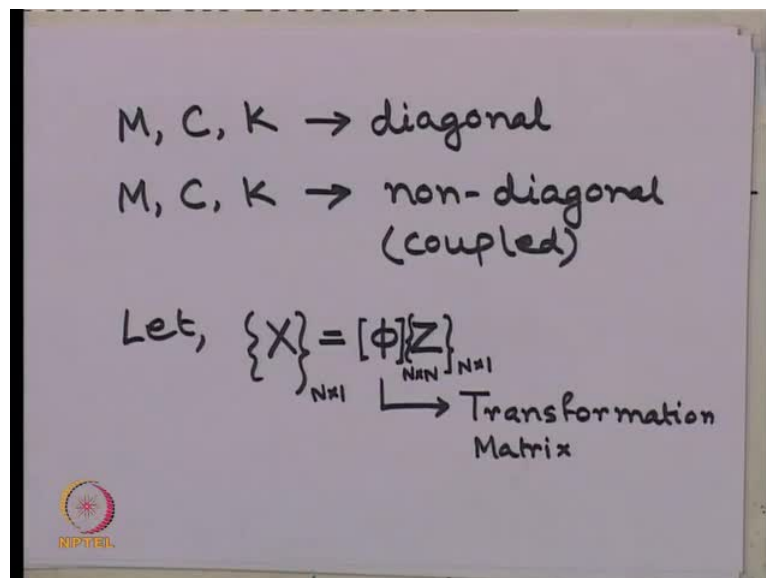 M, C, K → diagonal
M, C, K → non-diagonal
(coupled)
Let, {X}_{N×1} = [Φ]_{N×N} {Z}_{N×1}
Transformation
Matrix
NPTEL